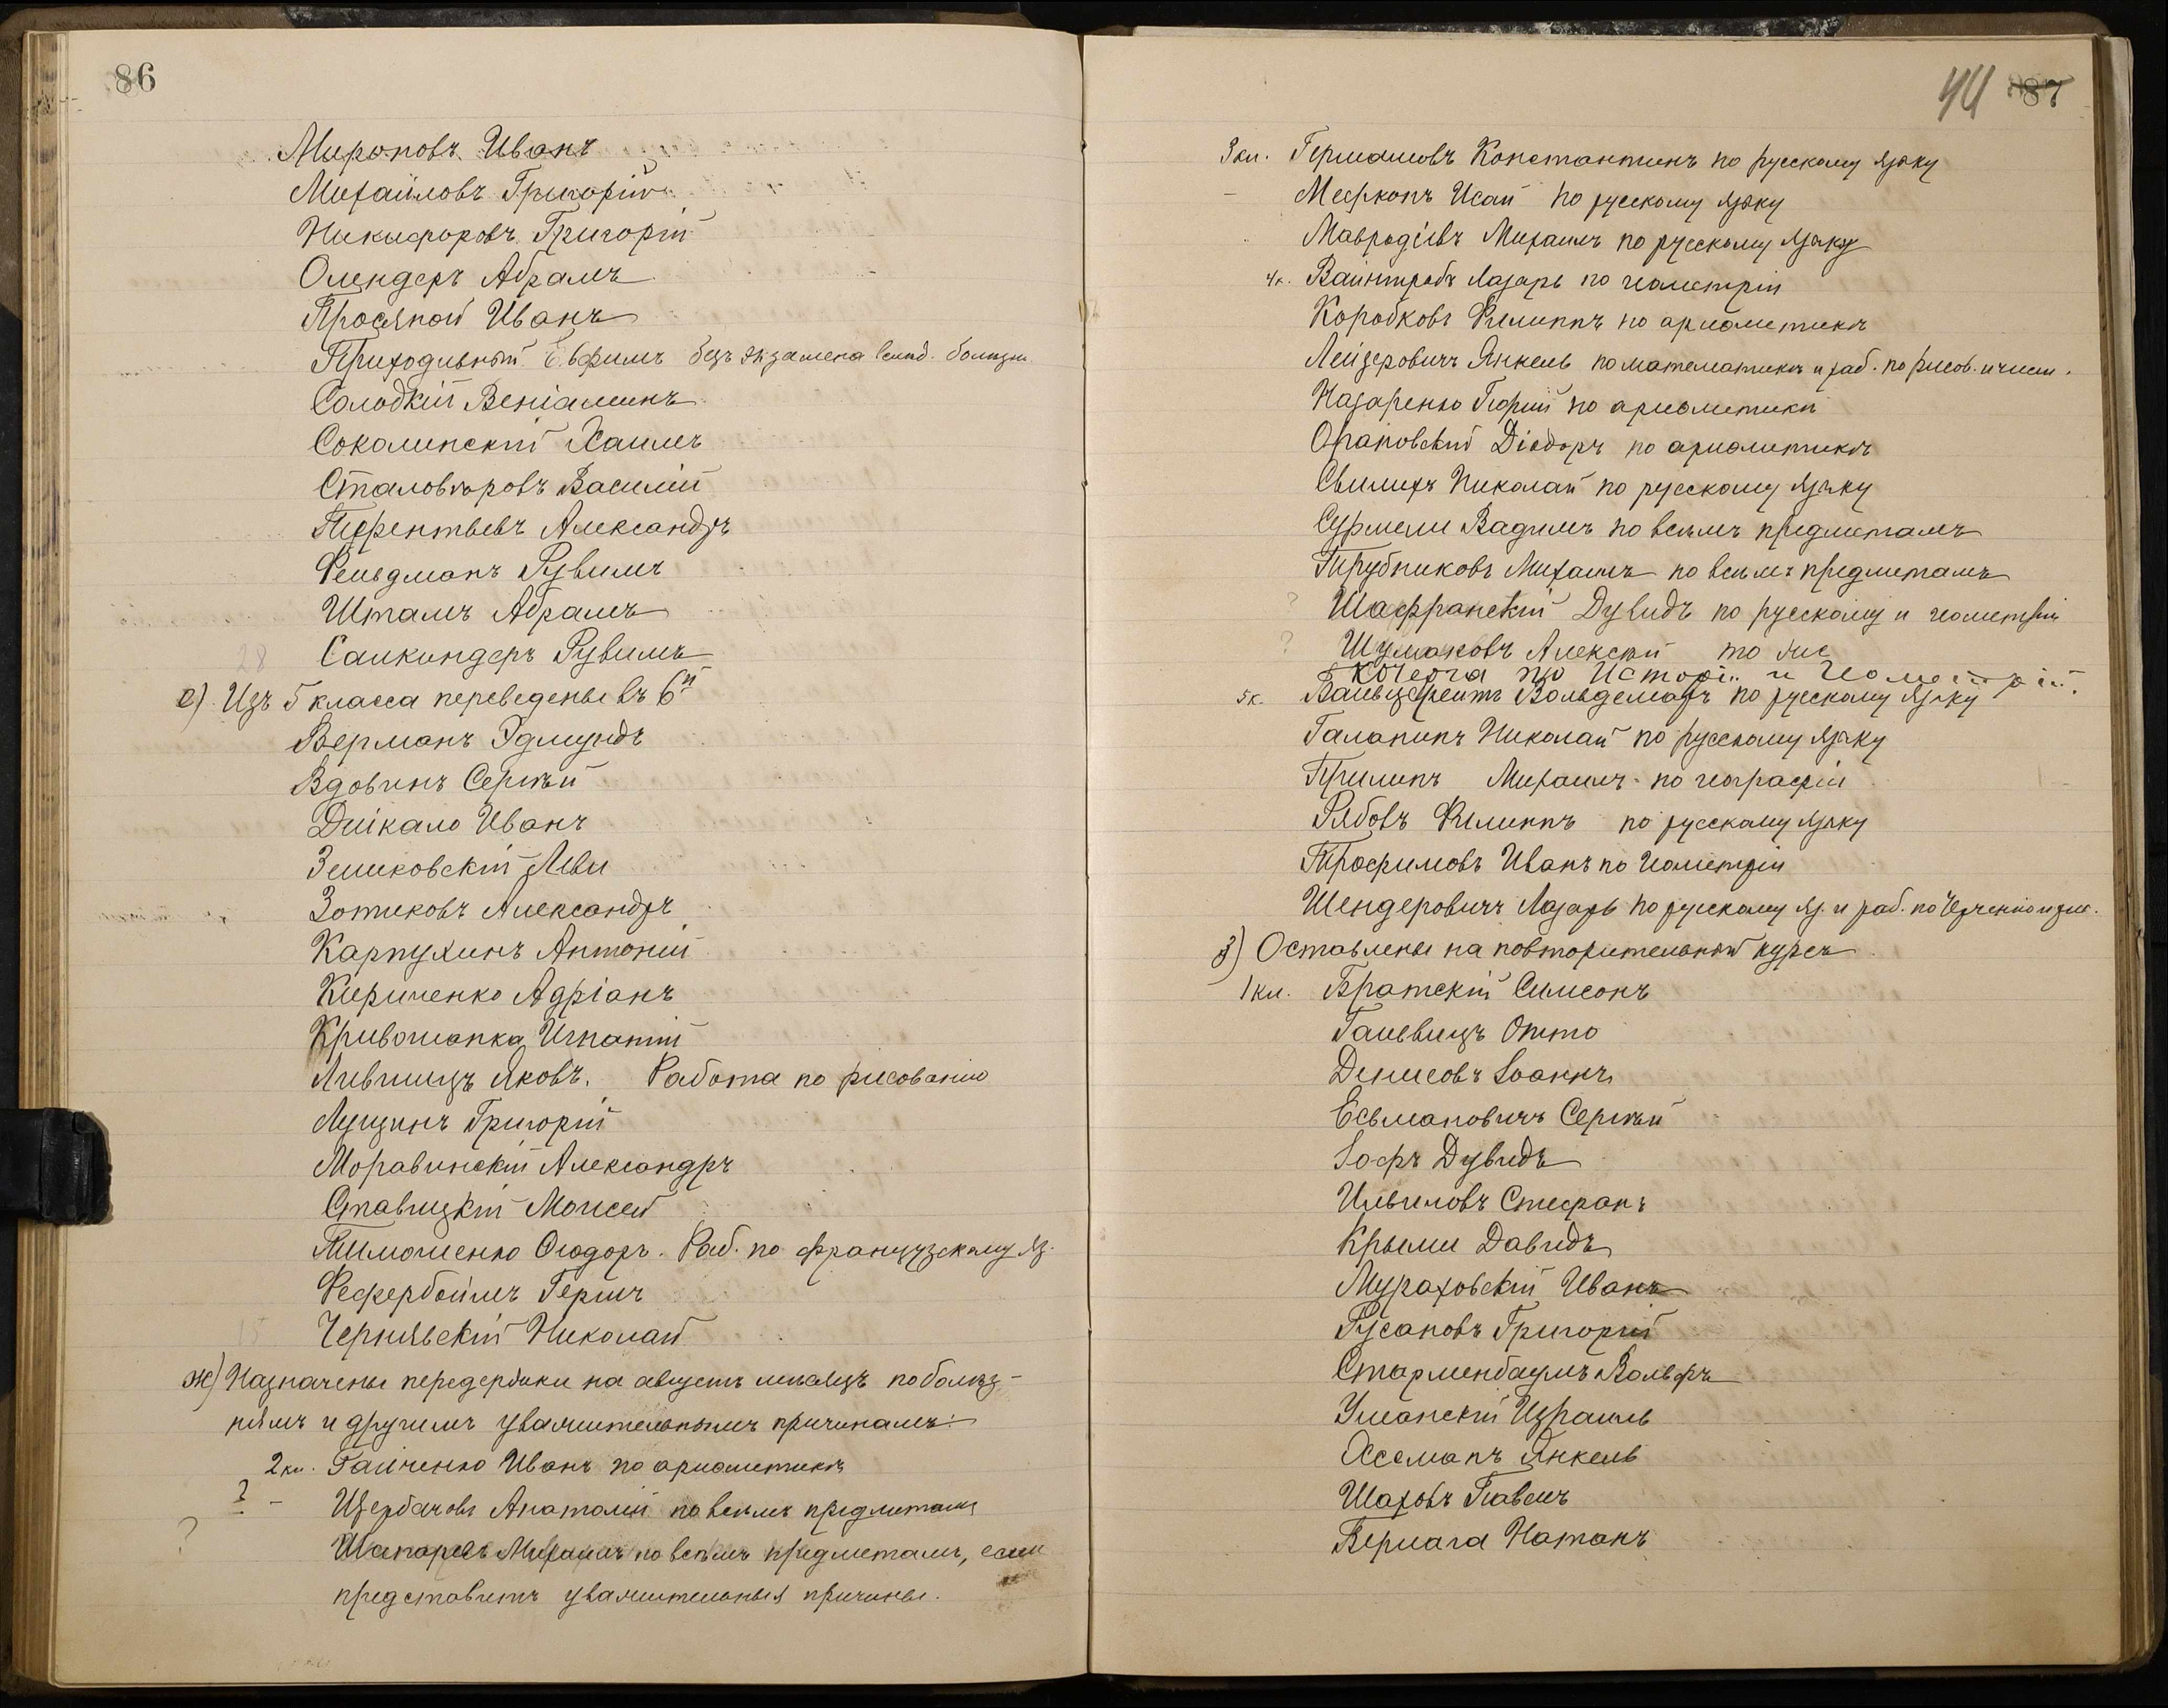 86
Мироновъ Иванъ
Михайловъ Григорій
Никифоровъ Григорій
Олендеръ Абрамъ
Просяной Иванъ
Приходивный Евфимъ безъ экзамена болѣзни
Солодкій Веніаминъ
Соколинскій Хаимъ
Сталовѣровъ Василій
Терентьевъ Александръ
Фельдманъ Рувимъ
Шталь Абрамъ
28 Салкиндеръ Рувимъ
е) Изъ 5 класса переведены въ 6й
Верманъ Эдмундъ
Вдовинъ Сергѣй
Дикало Иванъ
Левъ
Зотиковъ Александръ
Карпухинъ Антоній
Кириченко Адріанъ
Кривошапка Игнатій
Лившицъ Яковъ. Работа по рисованію
Лущинъ Григорій
Моравинскій Александръ
Ставицкій Моисей
Тимошенко Ѳеодоръ. Раб. по французскому яз.
Фефербоймъ Гершъ
15 Чернявскій Николай
ж) Назначены передержки на августъ мѣсяцъ по болѣз-
нямъ и другимъ уважительнымъ причинамъ:
2 кл. Гайченко Иванъ по ариѳметикѣ
? - Щербачовъ Анатолій по всѣмъ предметамъ
? Михаилъ по всѣмъ предметамъ, если
представитъ уважительныя причины.
44 87
3 кл. Германовъ Константинъ по русскому языку
- Исай по русскому языку
Мавродіевъ Михаилъ по русскому языку
4 к. Вайнтробъ Лазарь по геометріи
Коробковъ Филиппъ по ариѳметикѣ
Лейзеровичъ Янкель по математикѣ и раб. по рисов. и
Назаренко Георгій по ариѳметикѣ
Діодоръ по ариѳметикѣ
Николай по русскому языку
Сурмели Вадимъ по всѣмъ предметамъ
Трубниковъ Михаилъ по всѣмъ предметамъ
? Шафранскій Дувидъ по русскому и геометріи
? Шумаковъ Алексѣй по
Кочерга по Исторіи и Геометріи.
5 к. Вольдемаръ по русскому языку
Галанинъ Николай по русскому языку
Прилинъ Михаилъ по географіи
Рябовъ Филиппъ по русскому языку
Трофимовъ Иванъ по Геометріи
Шендеровичъ Лазарь по русскому яз. и раб. по Черченію и
з) Оставлены на повторительный курсъ
1 кл. Братскій Симеонъ
Галевицъ Отто
Денисовъ Іоаннъ
Есьмановичъ Сергѣй
Іофъ Дувидъ
Стефанъ
Крыми Давидъ
Мураховскій Иванъ
Русановъ Григорій
Вольфъ
Уманскій Израиль
Хосманъ Янкель
Шаховъ Павелъ
Натанъ